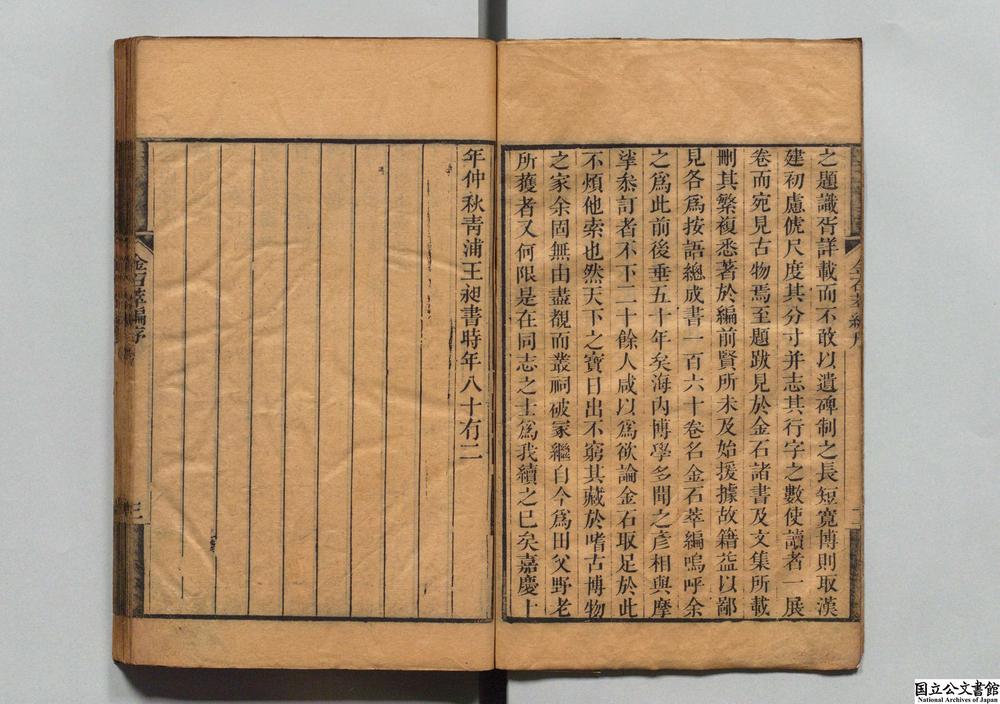 之題識胥詳載而不敢以遺碑制之長短寬博則取漢
建初慮俿尺度其分寸并志其行字之數使讀者一展
卷而宛見古物焉至題跋見於金石諸書及文集所載
刪其繁複悉著於編前賢所未及始援據故籍益以鄙
見各爲按語總成書一百六十卷名金石萃編嗚呼余
之爲此前後垂五十年矣海內博學多聞之彥相與摩
挲叅訂者不下二十餘人咸以爲欲論金石取足於此
不煩他索也然天下之寶日出不窮其藏於嗜古博物
之家余固無由盡覩而叢祠破冢繼自今爲田父野老
所獲者又何限是在同志之士爲我續之已矣嘉慶十
年仲秋靑浦王昶書時年八十有二
金石萃編序
三
国立公文書館
National Archives of Japan